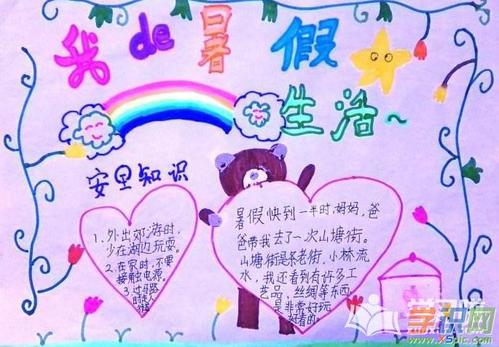 我de暑假
生活~
安里知识
1. 外出郊游时,
少在湖边玩耍。
2. 在家时,不要
接触电源。
3. 过马路
暑假快到一半时,妈妈,爸
爸带我去了一次山塘街。
山塘街是条老街,小林流
水,我还看到有许多工
艺品、丝绸等东西
是非常好玩
好看的
学识网
www.xspic.com